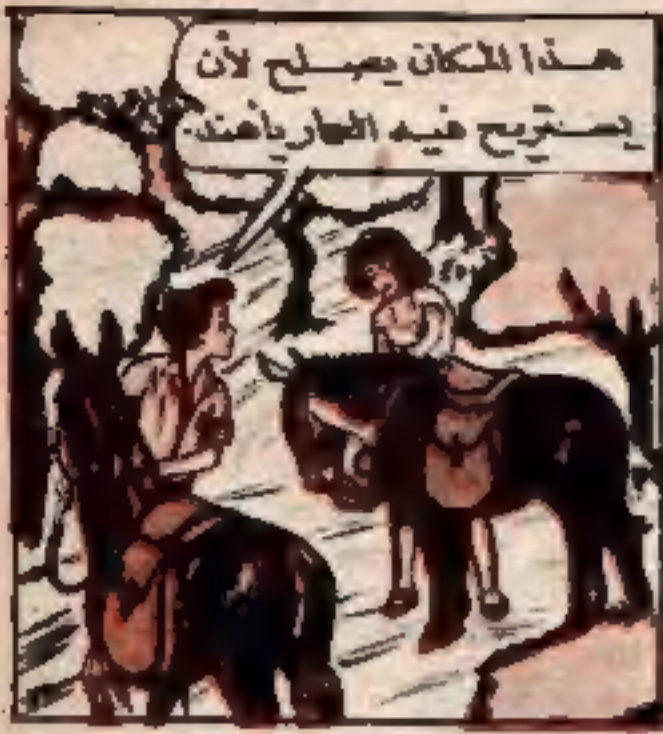 هذا المكان يصلح لأن
يستريح فيه المار يا هند